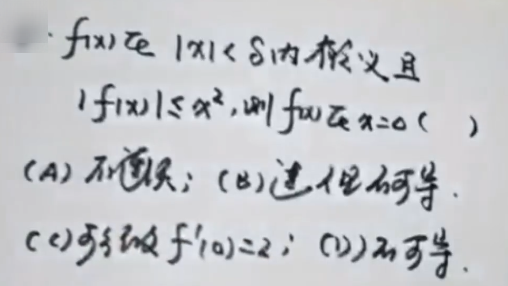 · f(x)在 |x|<δ内有定义且
|f(x)|≤x²,则f(x)在x=0( )
(A) 不连续; (B)连但不可导.
(C)可导且 f'(0)=2; (D)不可导.